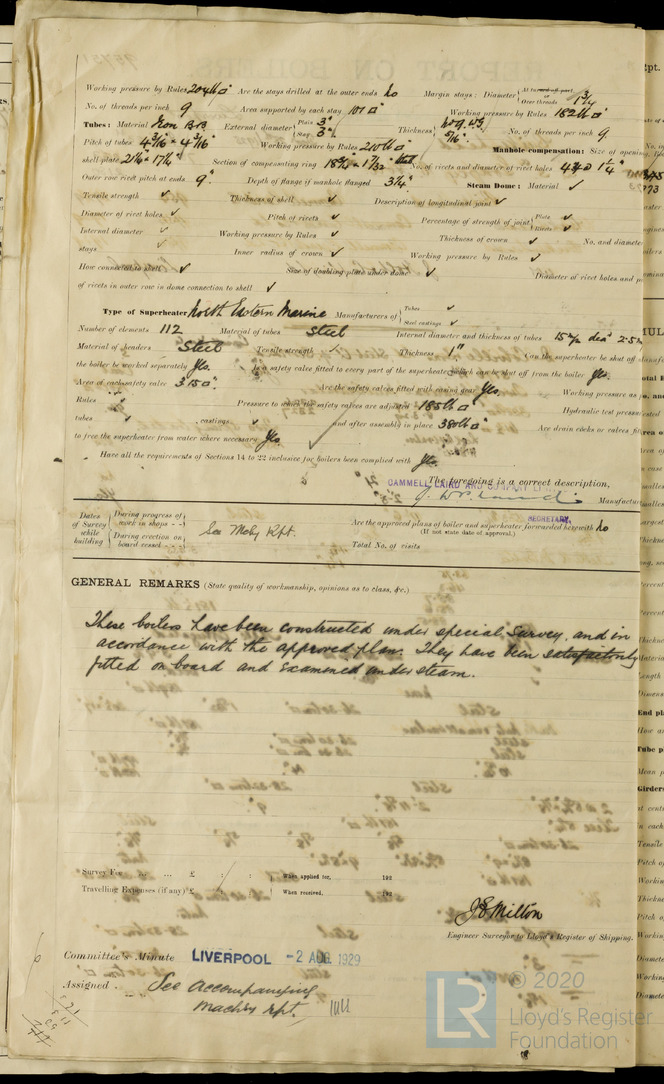 Working pressure by Rules 204lb □" Are the stays drilled at the outer ends No Margin stays: Diameter { At turned off part, or Over threads 1 3/4"
No. of threads per inch 9 Area supported by each stay 101 □" Working pressure by Rules 182lb □"
Tubes: Material Iron External diameter { Plain 3" Stay 3" Thickness { 5/16" No. of threads per inch 9
Pitch of tubes 4 3/16" × 4 3/16" Working pressure by Rules 210lb □" Manhole compensation: Size of opening
shell plate Section of compensating ring No. of rivets and diameter of rivet holes 1 1/4"
Outer row rivet pitch at ends 9" Depth of flange if manhole flanged 3 1/4" Steam Dome: Material ✓
Tensile strength ✓ Thickness of shell ✓ Description of longitudinal joint ✓
Diameter of rivet holes ✓ Pitch of rivets ✓ Percentage of strength of joint { Plate ✓ Rivets ✓
Internal diameter ✓ Working pressure by Rules ✓ Thickness of crown ✓ No. and diameter
stays ✓ Inner radius of crown ✓ Working pressure by Rules ✓
How connected to shell ✓ Size of doubling plate under dome ✓ Diameter of rivet holes and
of rivets in outer row in dome connection to shell ✓
Type of Superheater North Eastern Marine Manufacturers of { Tubes ✓ Steel castings ✓
Number of elements 112 Material of tubes Steel Internal diameter and thickness of tubes
Material of headers Steel Tensile strength ✓ Thickness 1" Can the superheater be shut off
the boiler be worked separately Yes. Is a safety valve fitted to every part of the superheater which can be shut off from the boiler Yes.
Area of each safety valve Are the safety valves fitted with easing gear Yes. Working pressure as
Rules ✓ Pressure to which the safety valves are adjusted 185lb □" Hydraulic test pressure
tubes ✓ castings ✓ and after assembly in place 380lb □" Are drain cocks or valves
to free the superheater from water where necessary Yes
Have all the requirements of Sections 14 to 22 inclusive for boilers been complied with Yes
The foregoing is a correct description,
CAMMELL LAIRD AND COMPANY
Manufacturer
SECRETARY.
Dates of Survey while building { During progress of work in shops - - During erection on board vessel - - - } See Mchy Rpt. Are the approved plans of boiler and superheater forwarded herewith No
(If not state date of approval.)
Total No. of visits
GENERAL REMARKS (State quality of workmanship, opinions as to class, &c.)
These boilers have been constructed under special survey, and in
accordance with the approved plan. They have been satisfactorily
fitted on board and examined under steam.
Survey Fee ... ... £ : : When applied for, 192
Travelling Expenses (if any) £ : : When received, 192
J E Milton
Engineer Surveyor to Lloyd's Register of Shipping.
Committee's Minute LIVERPOOL -2 AUG 1929
Assigned See accompanying
Machy Rpt.
© 2020
LR Lloyd's Register
Foundation